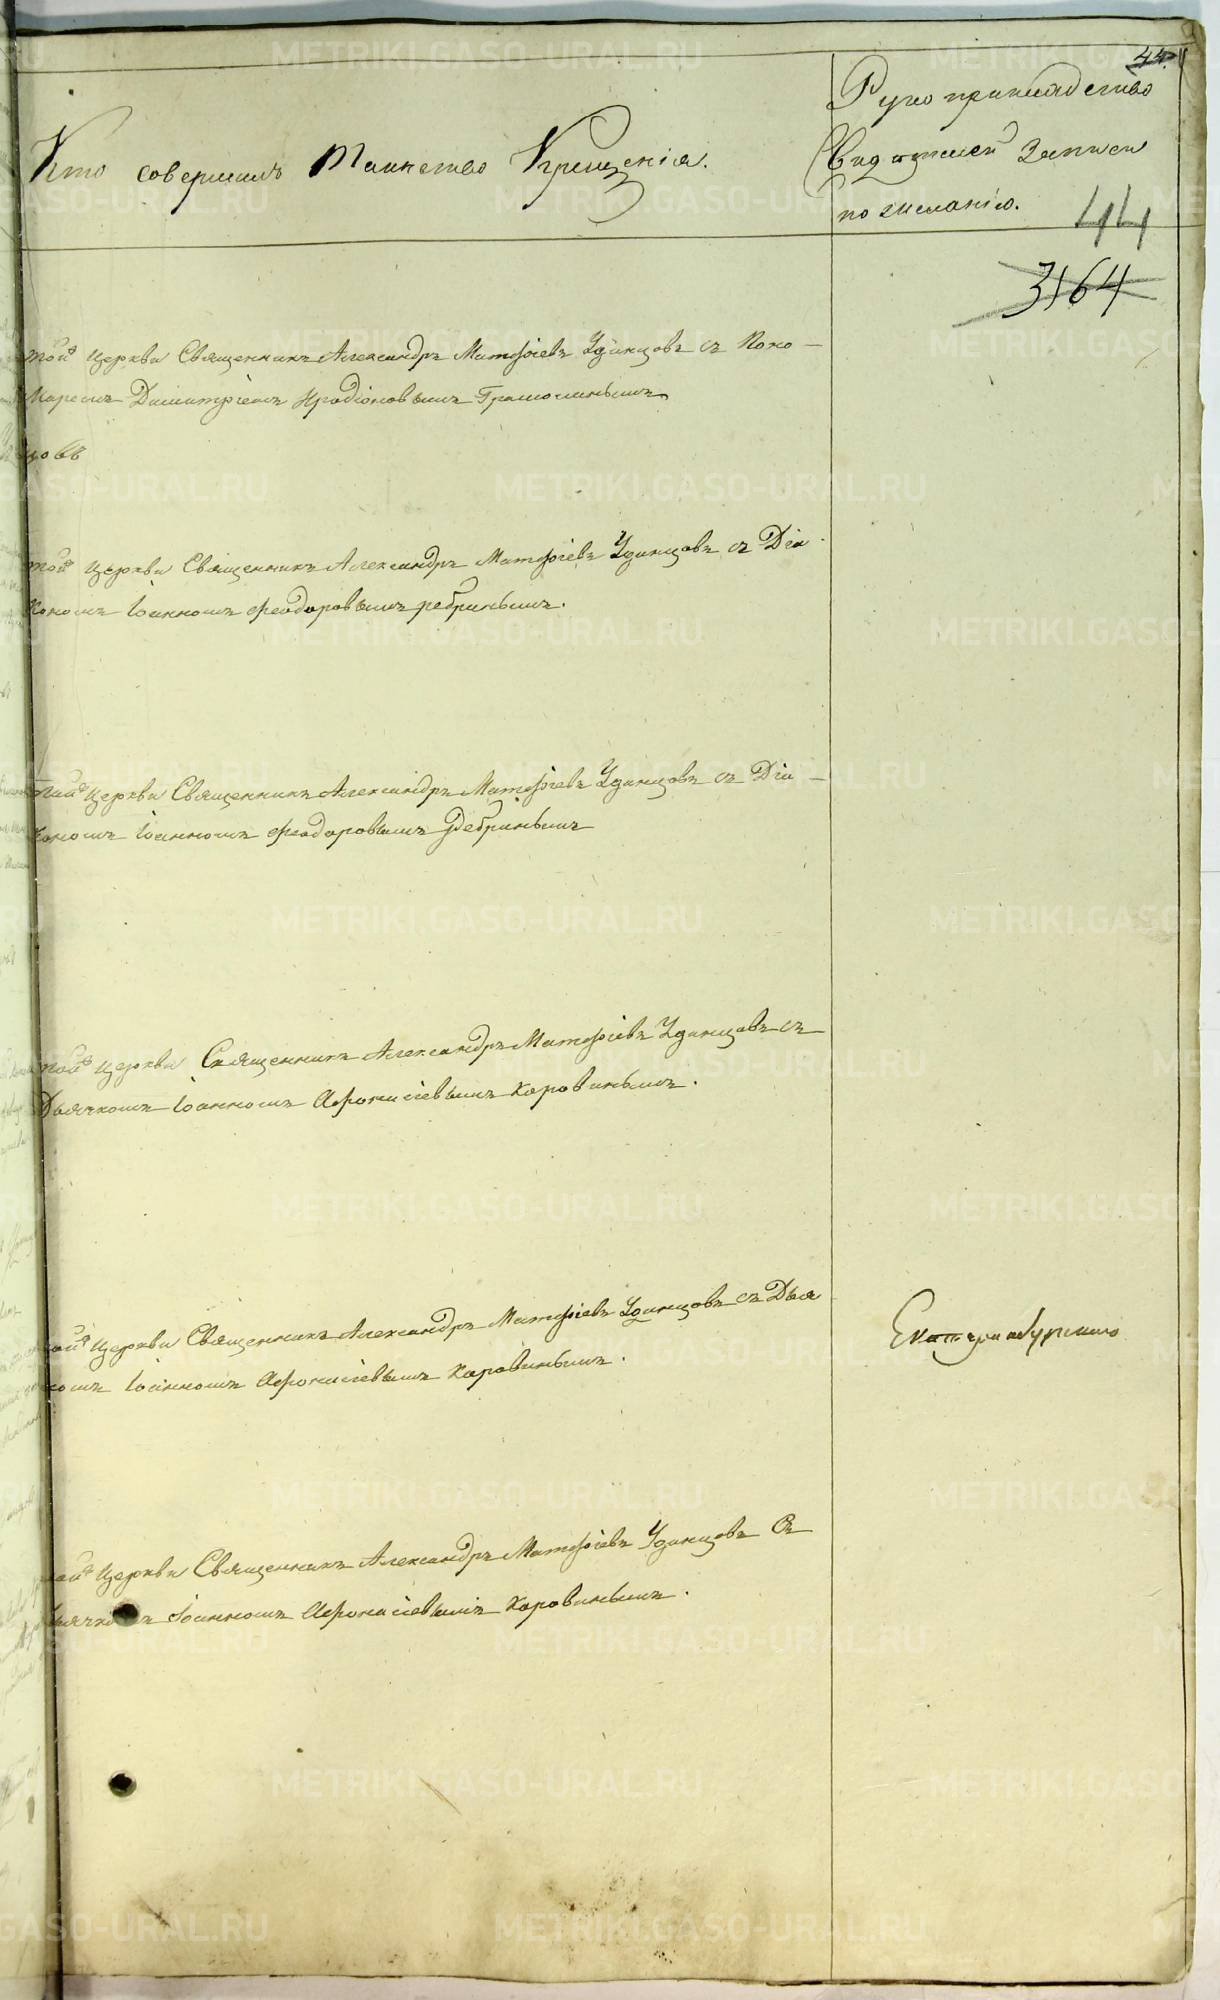 44.
Кто совершилъ Таинство Крещенія.
Рукоприкладство
Свидетелей Записи
по желанію.
44
3164
той Церкви Священникъ Александръ Матфіевъ Удинцовъ съ Поно-
маремъ Димитріемъ Иродіоновымъ Грамолинымъ
цовъ
той Церкви Священникъ Александръ Матфіевъ Удинцовъ съ Діа
кономъ Іоанномъ Феодоровымъ Ребринымъ.
той Церкви Священникъ Александръ Матфіевъ Удинцовъ съ Діа-
кономъ Іоанномъ Феодоровымъ Ребринымъ
той Церкви Священникъ Александръ Матфіевъ Удинцовъ съ
Дьячкомъ Іоанномъ Афонасіевымъ Коровинымъ.
той Церкви Священникъ Александръ Матфіевъ Удинцовъ съ Дья
комъ Іоанномъ Афонасіевымъ Коровинымъ.
Екатеринбургского
той Церкви Священникъ Александръ Матфіевъ Удинцовъ Съ
дьячкомъ Іоанномъ Афонасіевымъ Коровинымъ.
METRIKI.GASO-URAL.RU